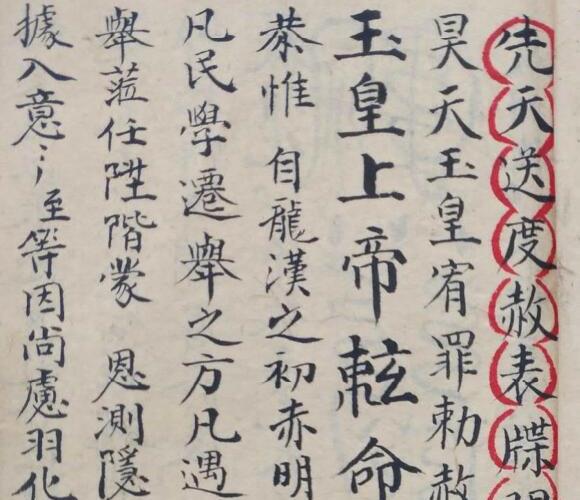 先天送度赦表牒
昊天玉皇宥罪勅赦
玉皇上帝 命
恭惟 自龍漢之初赤明
凡民學遷舉之方凡遇
舉蒞任陞階蒙 恩測隱
據入意〻至等因尚慮羽化